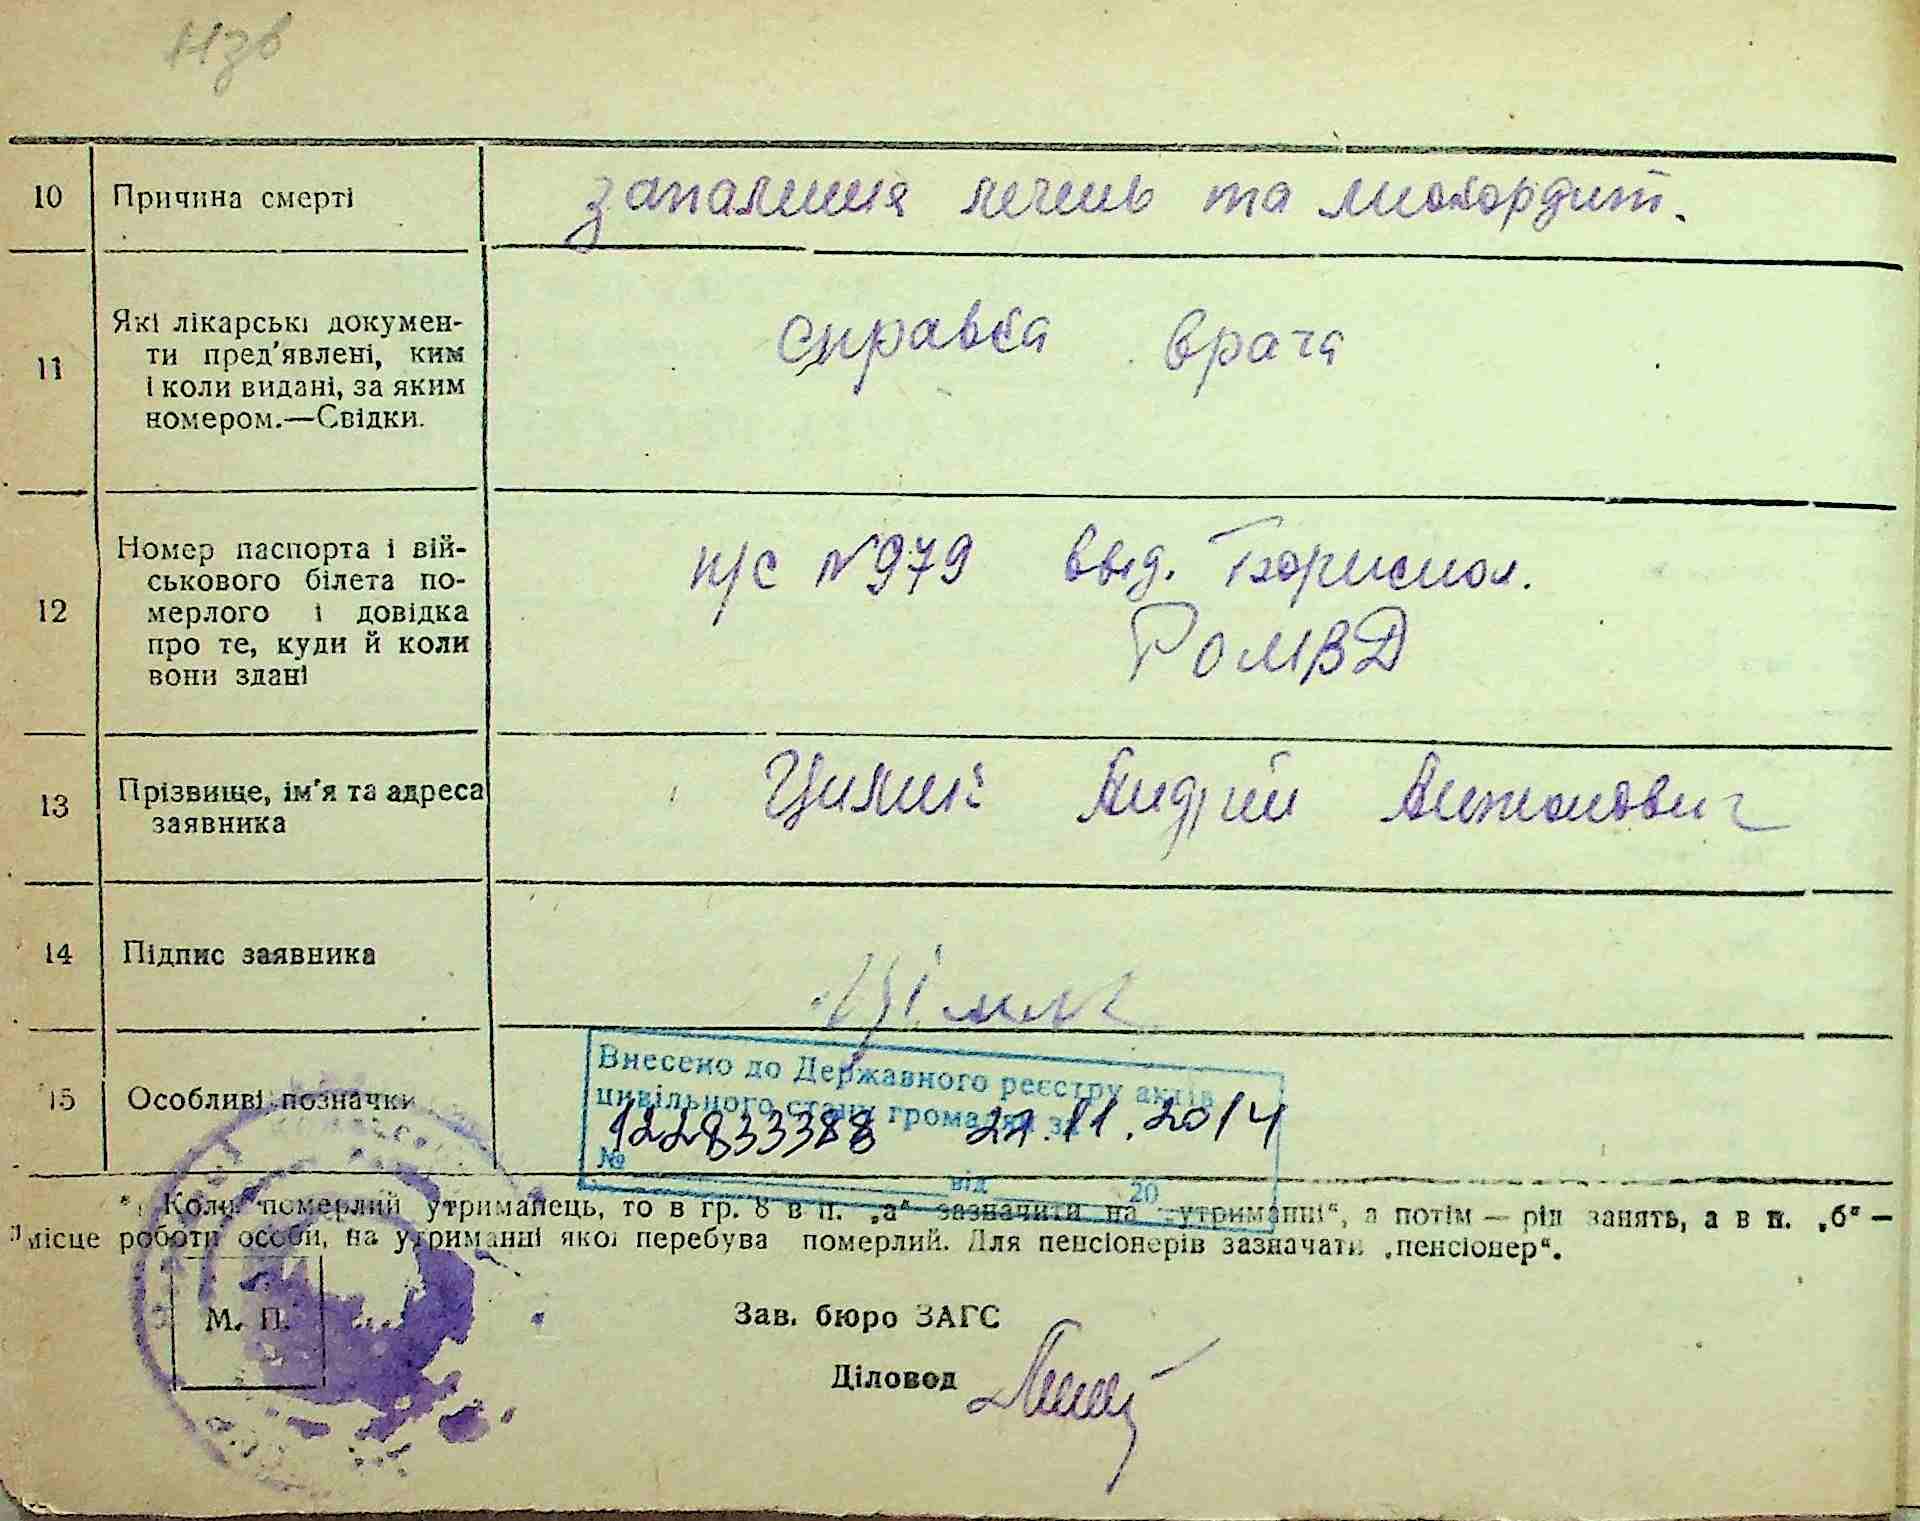 10 Причина смерті запалення печень та миокордит.
11 Які лікарські докумен-
ти пред'явлені, ким
і коли видані, за яким
номером.—Свідки.
справка врача
12 Номер паспорта і вій-
ськового білета по-
мерлого і довідка
про те, куди й коли
вони здані
п/с №979 выд. Бориспол.
РОМВД
13 Прізвище, ім'я та адреса
заявника
Андрій Антонович
14 Підпис заявника
15 Особливі позначки
Внесено до Державного реєстру актів
цивільного стану громадян за
№ 122833388 від 20 22.11.2014
* Коли померлий утриманець, то в гр. 8 в п. „а“ зазначити на „утриманні“, а потім — рід занять, а в п. „б“ —
місце роботи особи, на утриманні якої перебува померлий. Для пенсіонерів зазначати „пенсіонер“.
М. П.
Зав. бюро ЗАГС
Діловод